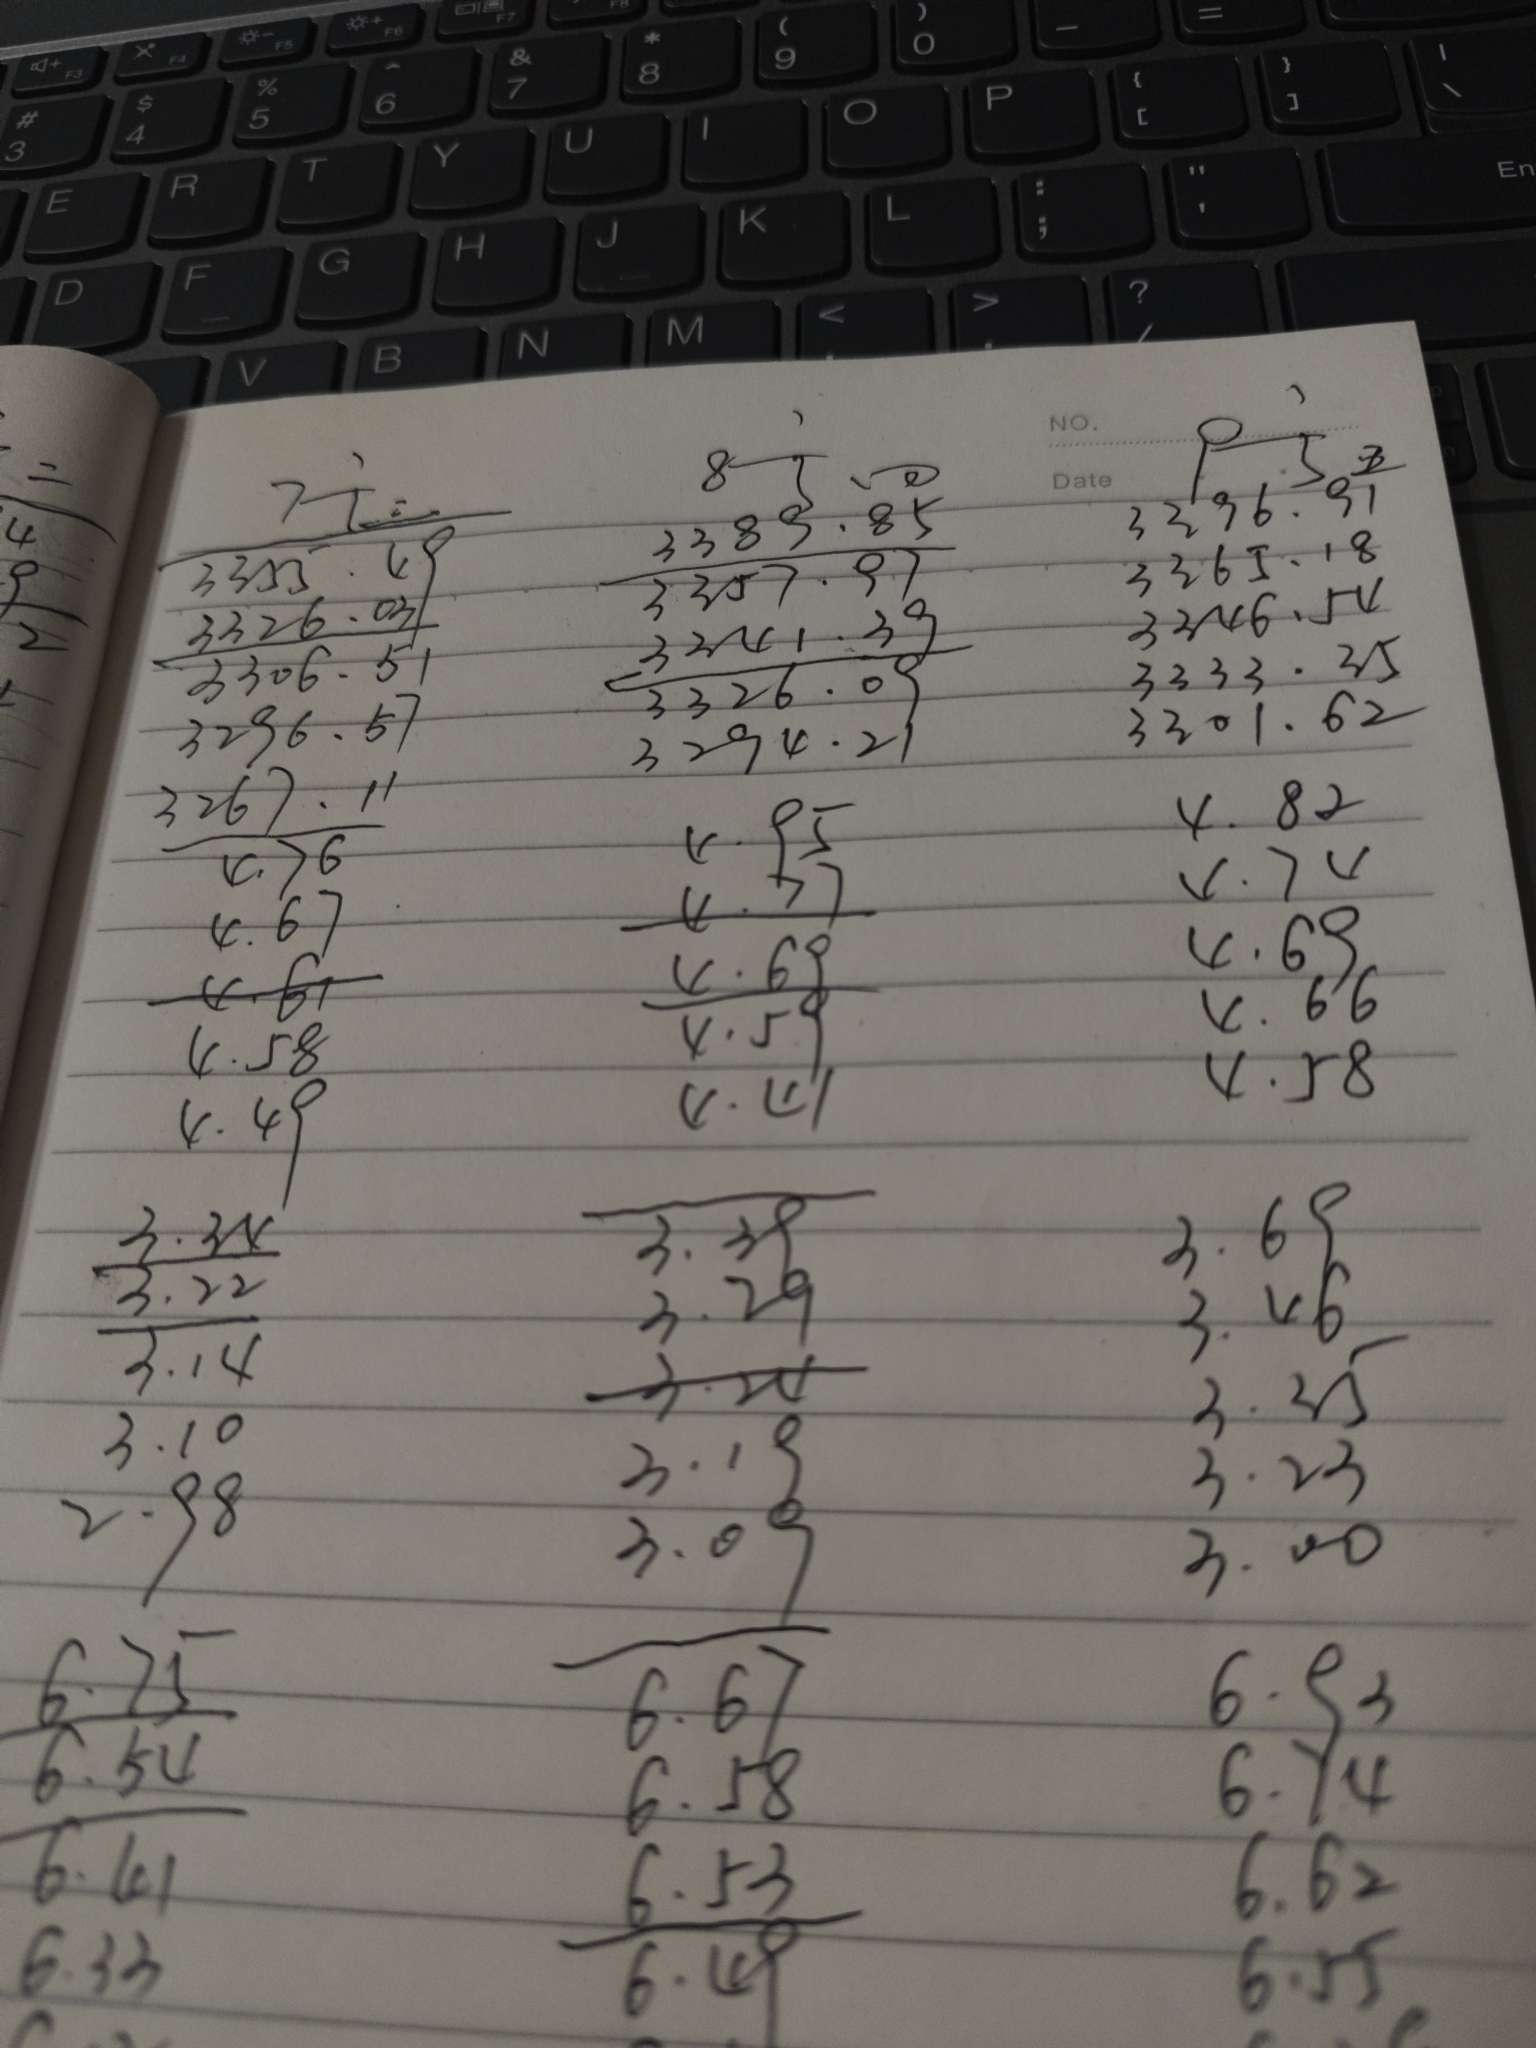 F3 F4 F5 F6 F7 F8
# 3 $ 4 % 5 ^ 6 & 7 * 8 ( 9 ) 0 _ =
E R T Y U I O P { [ } ] \
D F G H J K L : ; " ' En
V B N M < , > . ? /
NO.
Date
二
4
9
2
3355.49
3326.03
3306.51
3296.57
3267.11
4.76
4.67
4.61
4.58
4.49
3.34
3.22
3.14
3.10
2.98
6.75
6.54
6.41
6.33
8 四
3389.85
3357.97
3341.39
3326.09
3294.21
4.95
4.77
4.69
4.59
4.41
3.39
3.29
3.24
3.19
3.09
6.67
6.58
6.53
6.49
3396.91
3365.18
3346.54
3333.35
3301.62
4.82
4.74
4.69
4.66
4.58
3.69
3.46
3.35
3.23
3.00
6.93
6.74
6.62
6.55